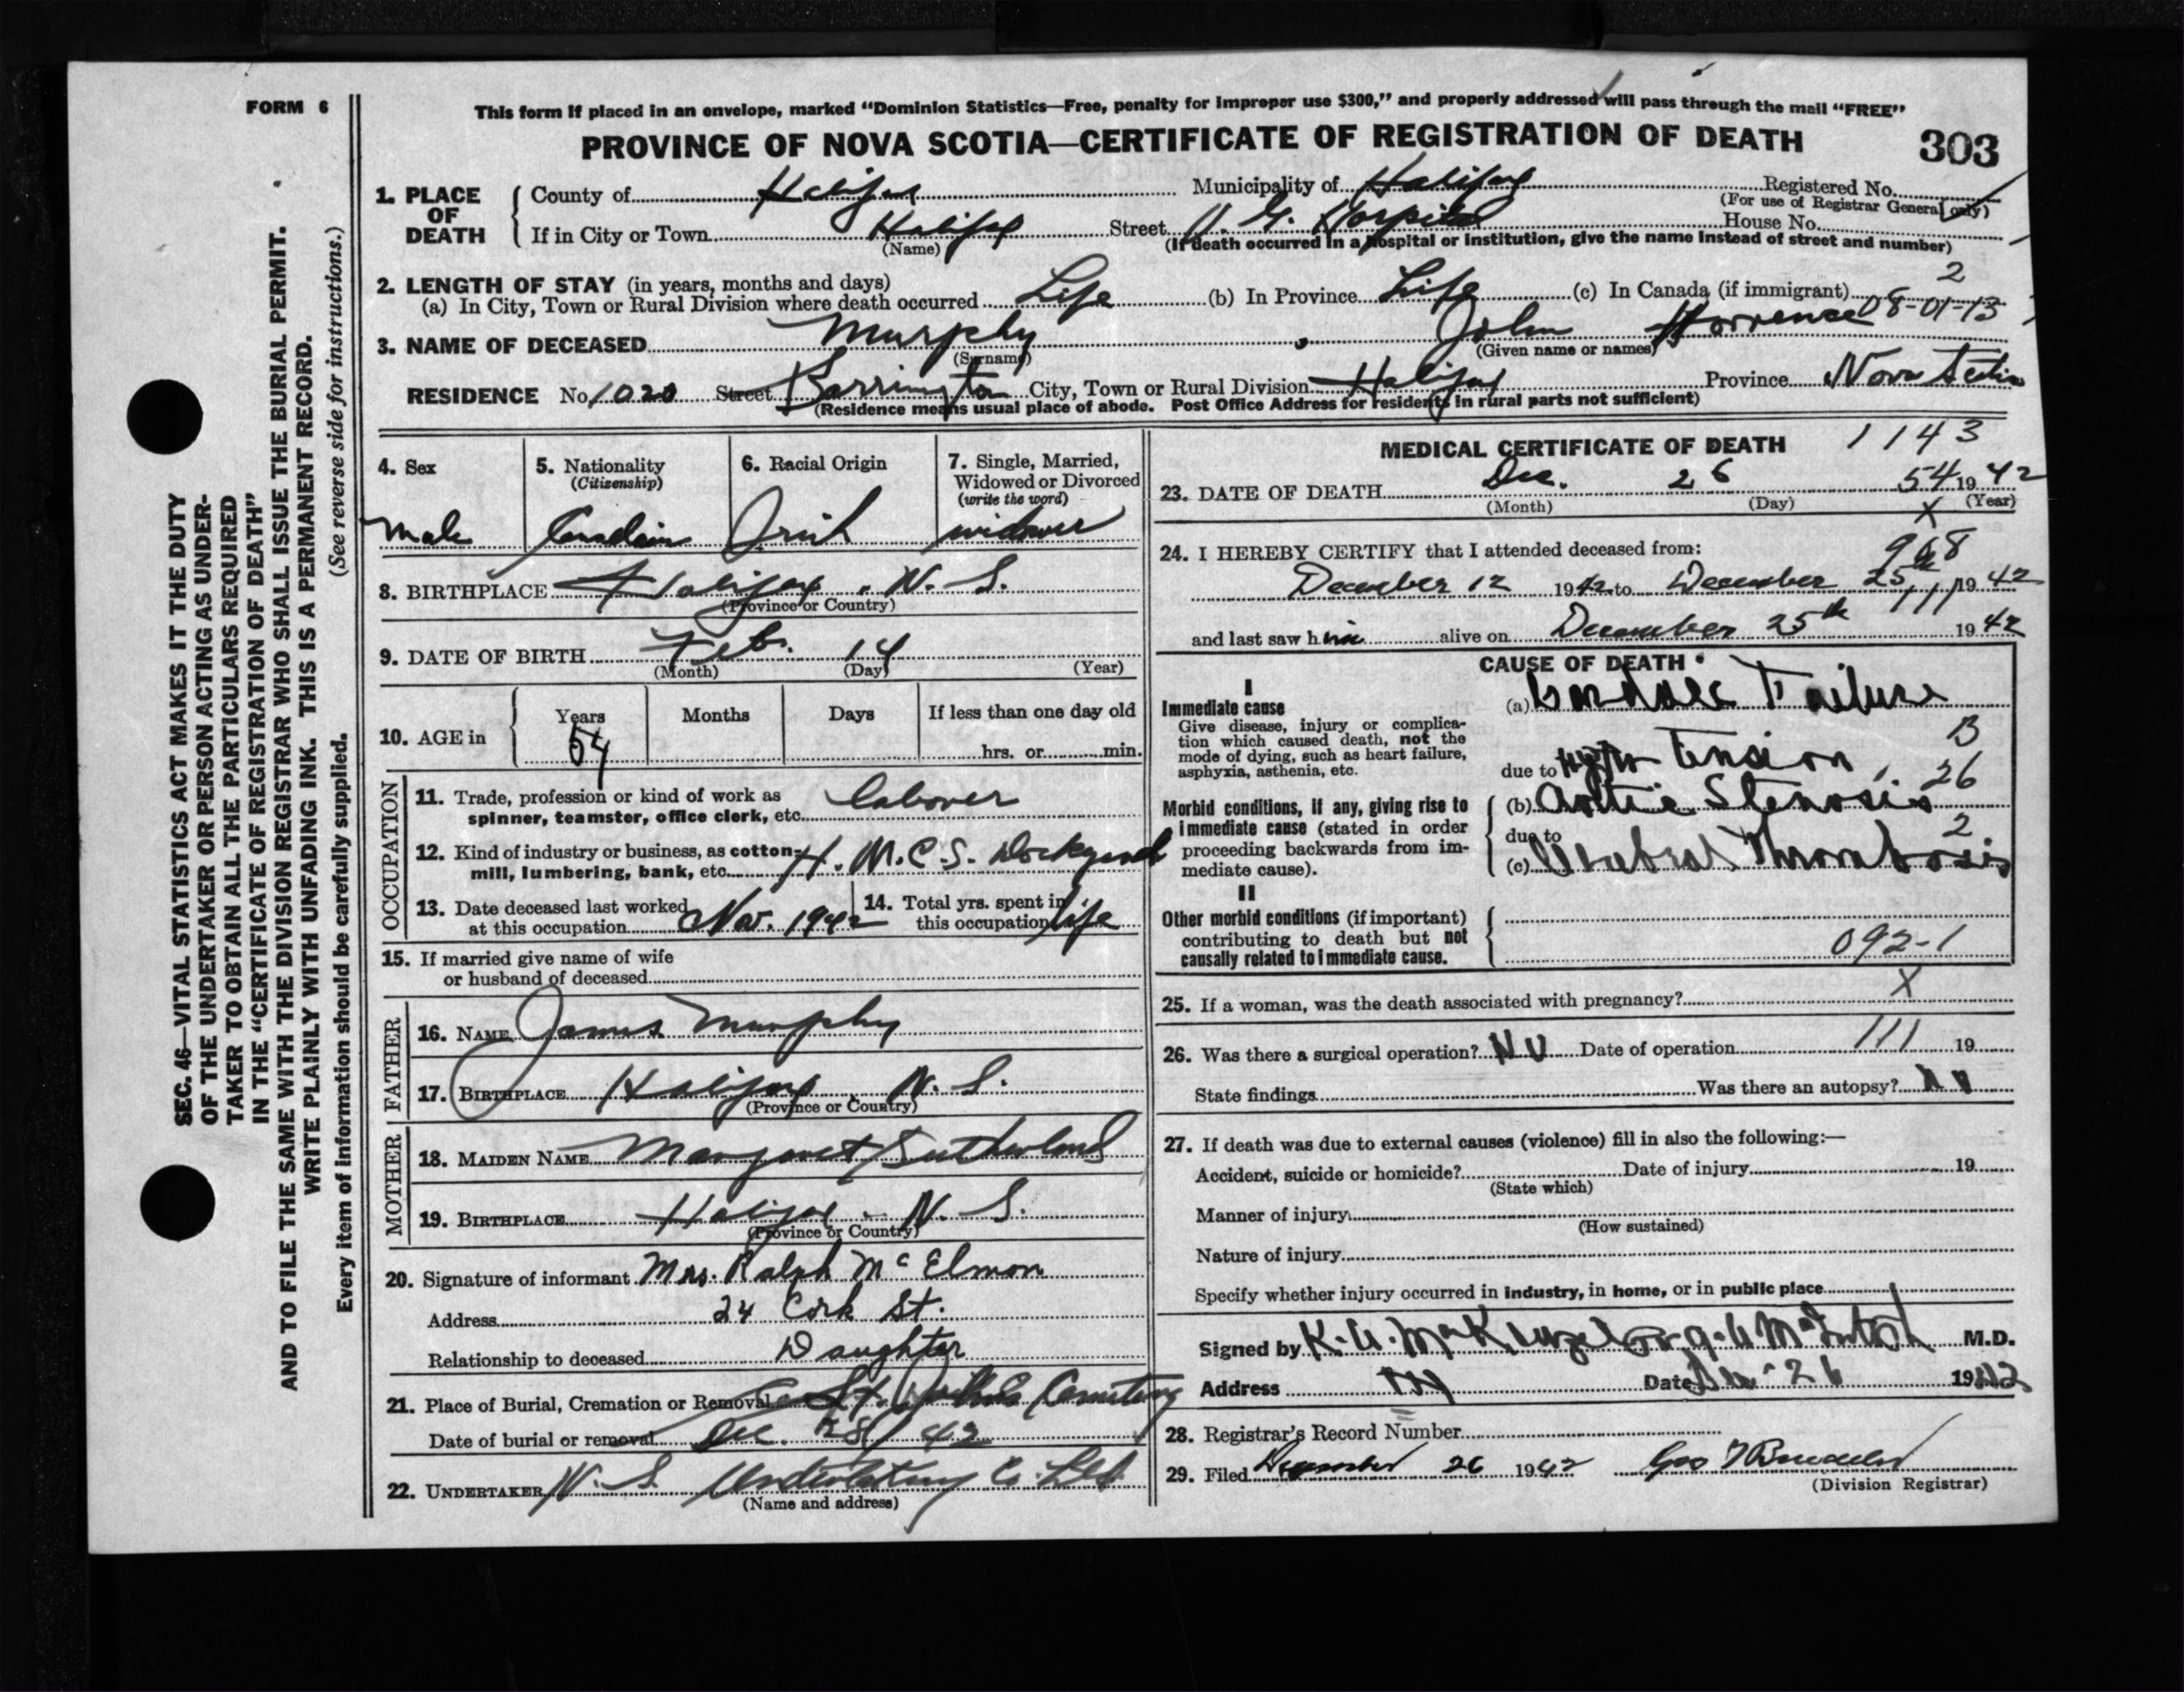 FORM 6
This form if placed in an envelope, marked “Dominion Statistics—Free, penalty for improper use $300,” and properly addressed will pass through the mail “FREE”
PROVINCE OF NOVA SCOTIA—CERTIFICATE OF REGISTRATION OF DEATH
303
1. PLACE OF DEATH
County of Halifax Municipality of Halifax Registered No.
(For use of Registrar General only)
If in City or Town Halifax Street V. G. Hospital House No.
(Name) (If death occurred in a hospital or institution, give the name instead of street and number)
2. LENGTH OF STAY (in years, months and days) 2
(a) In City, Town or Rural Division where death occurred Life (b) In Province Life (c) In Canada (if immigrant) 08-01-13
3. NAME OF DECEASED Murphy John
(Surname) (Given name or names)
RESIDENCE No. 1020 Street Barrington City, Town or Rural Division Halifax Province Nova Scotia
(Residence means usual place of abode. Post Office Address for residents in rural parts not sufficient)
4. Sex
Male
5. Nationality
(Citizenship)
Canadian
6. Racial Origin
Irish
7. Single, Married, Widowed or Divorced
(write the word)
widower
8. BIRTHPLACE Halifax. N. S.
(Province or Country)
9. DATE OF BIRTH Feb. 14
(Month) (Day) (Year)
10. AGE in
Years Months Days If less than one day old
54 hrs. or min.
OCCUPATION
11. Trade, profession or kind of work as
spinner, teamster, office clerk, etc. labourer
12. Kind of industry or business, as cotton-
mill, lumbering, bank, etc. H. M. C. S. Dockyard
13. Date deceased last worked
at this occupation Nov. 1942
14. Total yrs. spent in
this occupation life
15. If married give name of wife
or husband of deceased
FATHER
16. NAME James Murphy
17. BIRTHPLACE Halifax. N. S.
(Province or Country)
MOTHER
18. MAIDEN NAME Margaret Sutherland
19. BIRTHPLACE Halifax. N. S.
(Province or Country)
20. Signature of informant Mrs. Ralph McElmon
Address 24 Cork St.
Relationship to deceased Daughter
21. Place of Burial, Cremation or Removal St. Cemetery
Date of burial or removal Dec. 28/42
22. UNDERTAKER N. S. Undertaking Co. Ltd.
(Name and address)
MEDICAL CERTIFICATE OF DEATH 1143
23. DATE OF DEATH Dec. 26 54 1942
(Month) (Day) (Year)
X
24. I HEREBY CERTIFY that I attended deceased from: 968
December 12 1942 to December 25th 1942
111
and last saw him alive on December 25th 1942
CAUSE OF DEATH
I
Immediate cause
Give disease, injury or complica-
tion which caused death, not the
mode of dying, such as heart failure,
asphyxia, asthenia, etc.
(a) Cardiac Failure
B
due to Hypertension
26
Morbid conditions, if any, giving rise to
immediate cause (stated in order
proceeding backwards from im-
mediate cause).
(b) Aortic Stenosis
due to 2
(c) Cerebral Thrombosis
II
Other morbid conditions (if important)
contributing to death but not
causally related to immediate cause.
092-1
25. If a woman, was the death associated with pregnancy? X
26. Was there a surgical operation? No Date of operation 111 19
State findings Was there an autopsy? No
27. If death was due to external causes (violence) fill in also the following:—
Accident, suicide or homicide? Date of injury 19
(State which)
Manner of injury
(How sustained)
Nature of injury
Specify whether injury occurred in industry, in home, or in public place
Signed by K. A. McKenzie for McIntosh M.D.
Address Date Dec 26 1942
28. Registrar's Record Number
29. Filed December 26 1942 Geo
(Division Registrar)
SEC. 46—VITAL STATISTICS ACT MAKES IT THE DUTY
OF THE UNDERTAKER OR PERSON ACTING AS UNDER-
TAKER TO OBTAIN ALL THE PARTICULARS REQUIRED
IN THE “CERTIFICATE OF REGISTRATION OF DEATH”
AND TO FILE THE SAME WITH THE DIVISION REGISTRAR WHO SHALL ISSUE THE BURIAL PERMIT.
WRITE PLAINLY WITH UNFADING INK. THIS IS A PERMANENT RECORD.
(See reverse side for instructions.)
Every item of information should be carefully supplied.